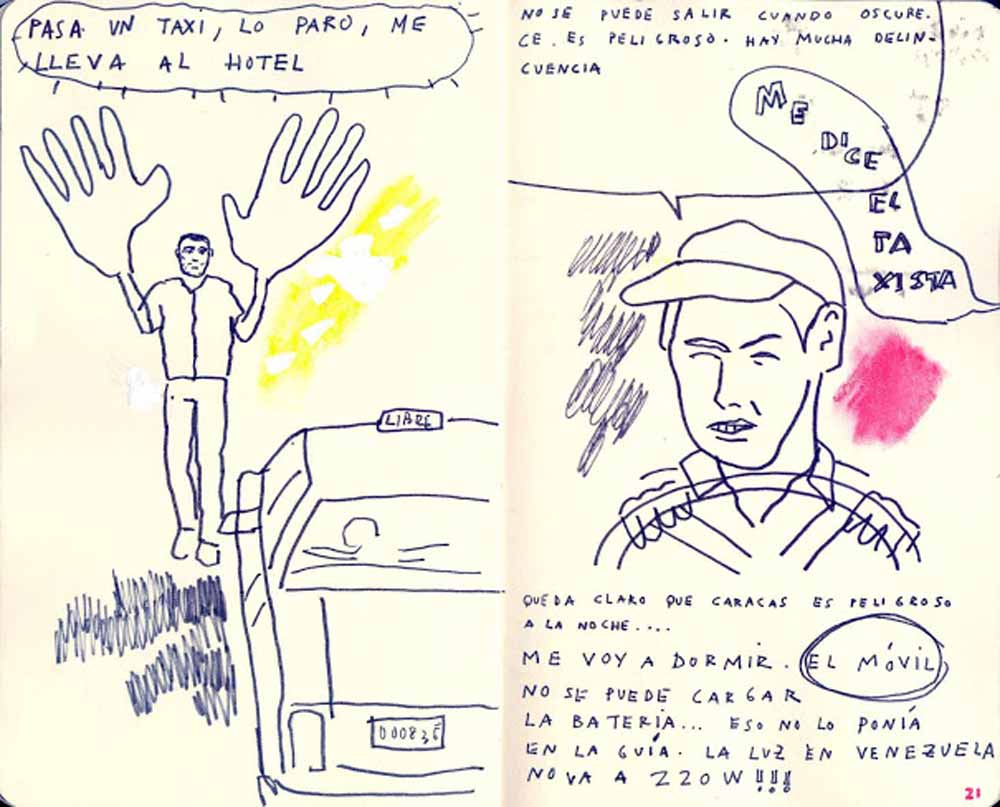 PASA UN TAXI, LO PARO, ME
LLEVA AL HOTEL
LIBRE
NO SE PUEDE SALIR CUANDO OSCURE-
CE. ES PELIGROSO. HAY MUCHA DELIN-
CUENCIA
ME
DICE
EL
TA
XISTA
QUEDA CLARO QUE CARACAS ES PELIGROSO
A LA NOCHE....
ME VOY A DORMIR. EL MÓVIL
NO SE PUEDE CARGAR
LA BATERIA... ESO NO LO PONÍA
EN LA GUÍA. LA LUZ EN VENEZUELA
NO VA A 220W!!!
21